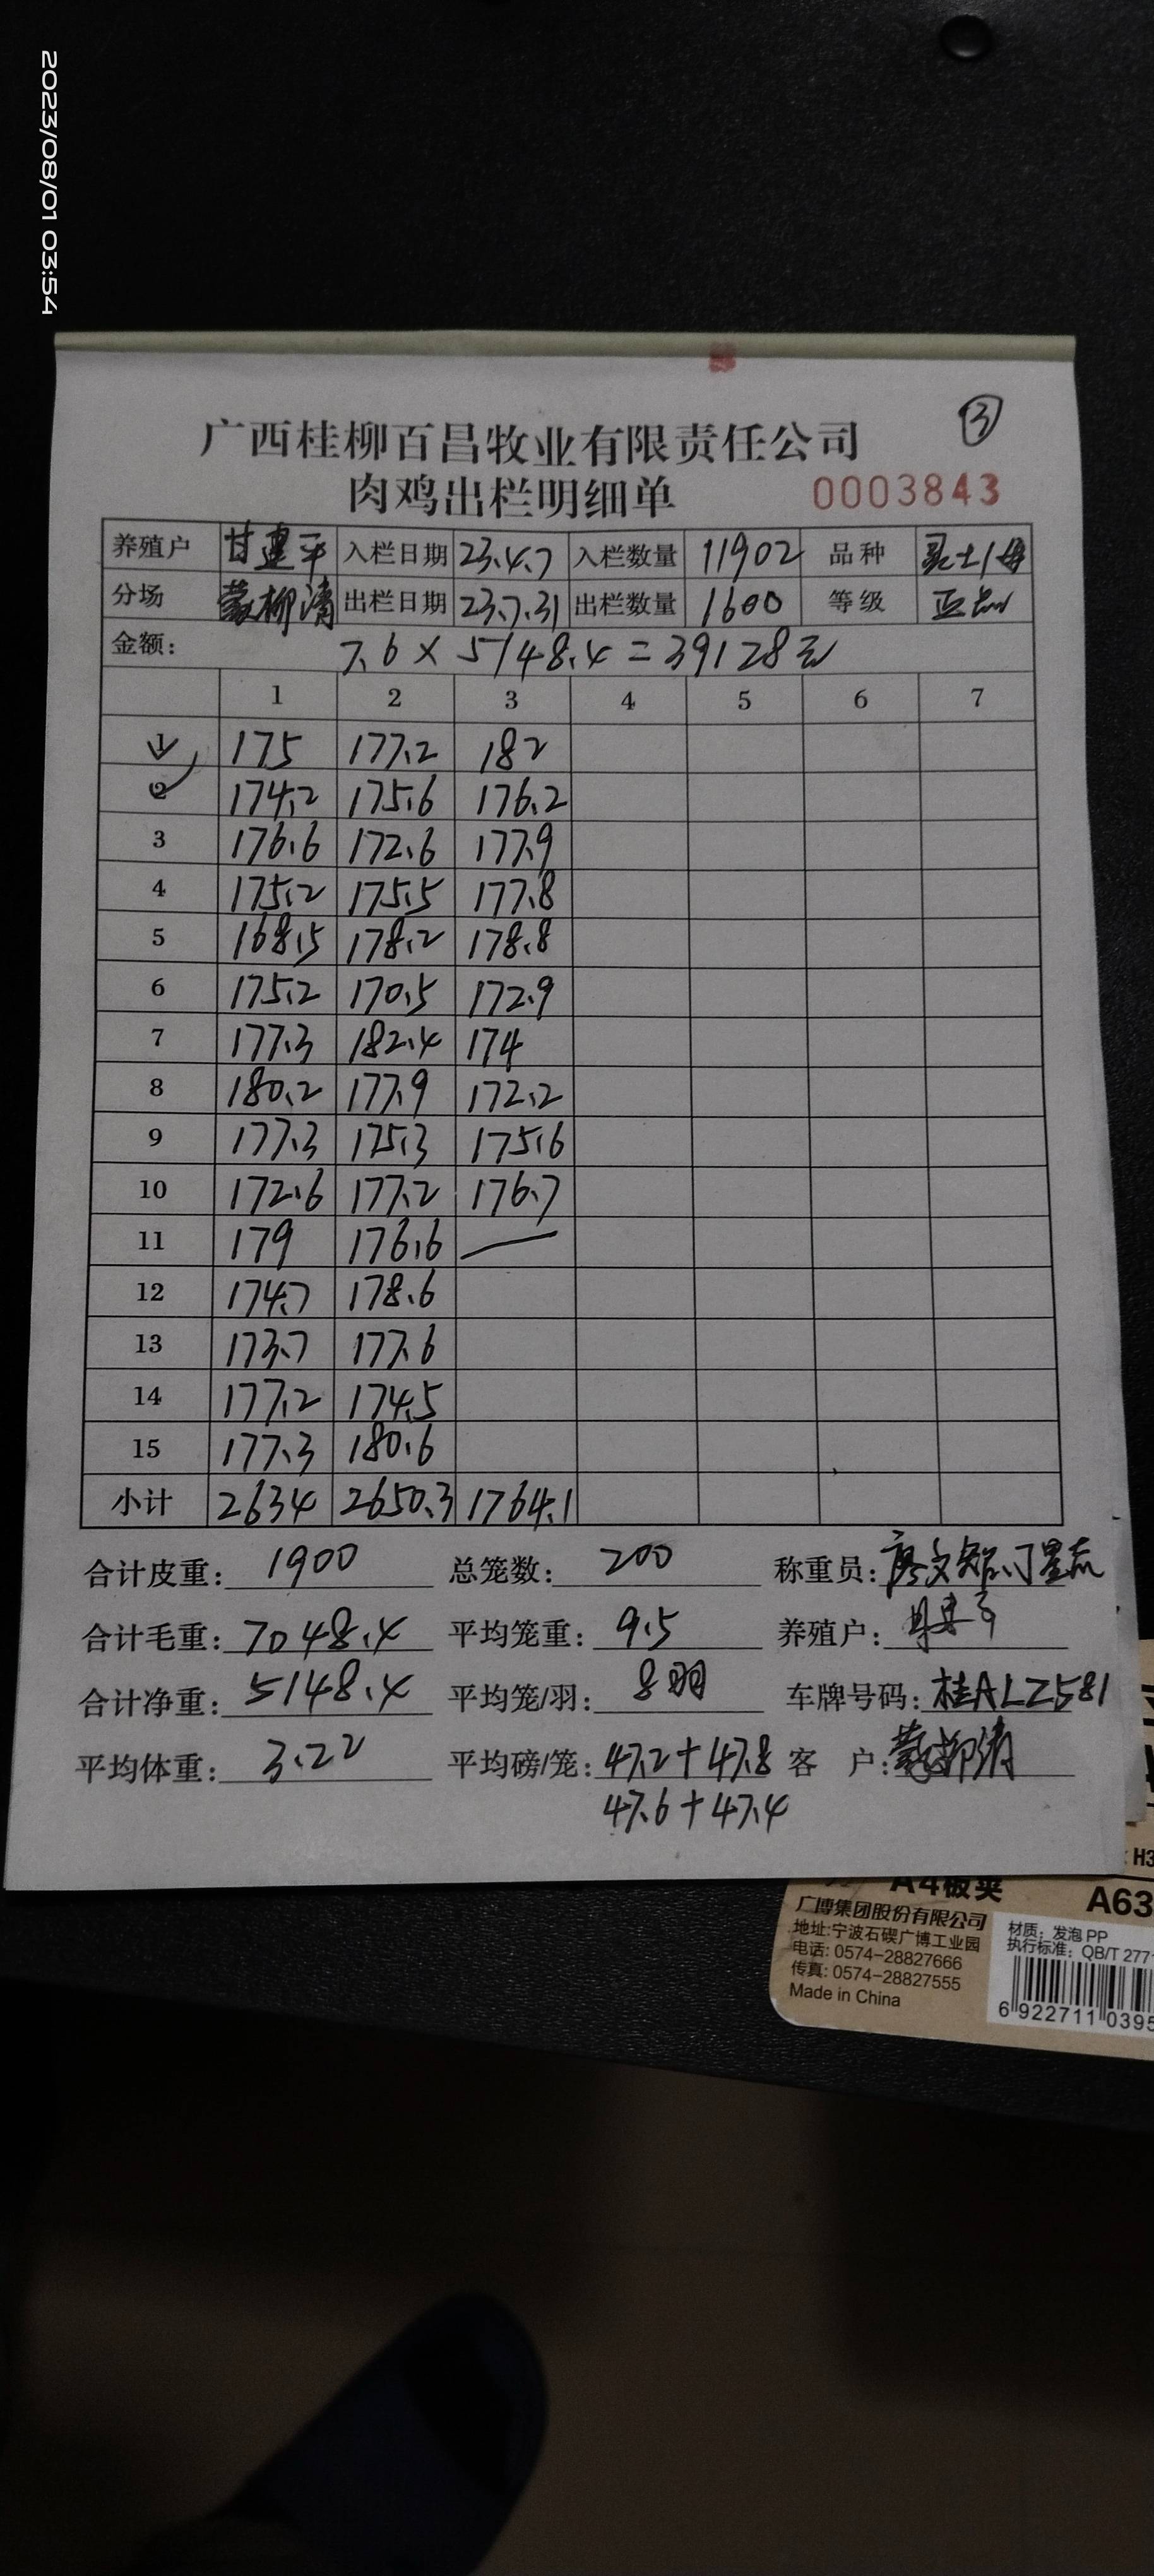 2023/08/01 03:54
③
广西桂柳百昌牧业有限责任公司
肉鸡出栏明细单 0003843
养殖户 甘建平 入栏日期 23.4.7 入栏数量 11902 品种
分场 蒙柳清 出栏日期 23.7.31 出栏数量 1600 等级
金额: 7.6 × 5148.4 = 39128元
1 2 3 4 5 6 7
1 175 177.2 182
2 174.2 175.6 176.2
3 176.6 172.6 177.9
4 175.2 175.5 177.8
5 168.5 178.2 178.8
6 175.2 170.5 172.9
7 177.3 182.4 174
8 180.2 177.9 172.2
9 177.3 175.3 175.6
10 172.6 177.2 176.7
11 179 176.6 —
12 174.7 178.6
13 173.7 177.6
14 177.2 174.5
15 177.3 180.6
小计 2634 2650.3 1764.1
合计皮重: 1900 总笼数: 200 称重员:
合计毛重: 7048.4 平均笼重: 9.5 养殖户:
合计净重: 5148.4 平均笼/羽: 8羽 车牌号码: 桂ALZ581
平均体重: 3.22 平均磅/笼: 47.2+47.8 客 户: 蒙柳清
47.6+47.4
H3
A4板夹 A63
广博集团股份有限公司
地址:宁波石碶广博工业园
电话: 0574-28827666
传真: 0574-28827555
Made in China
材质: 发泡 PP
执行标准: QB/T 277
6 922711 0395